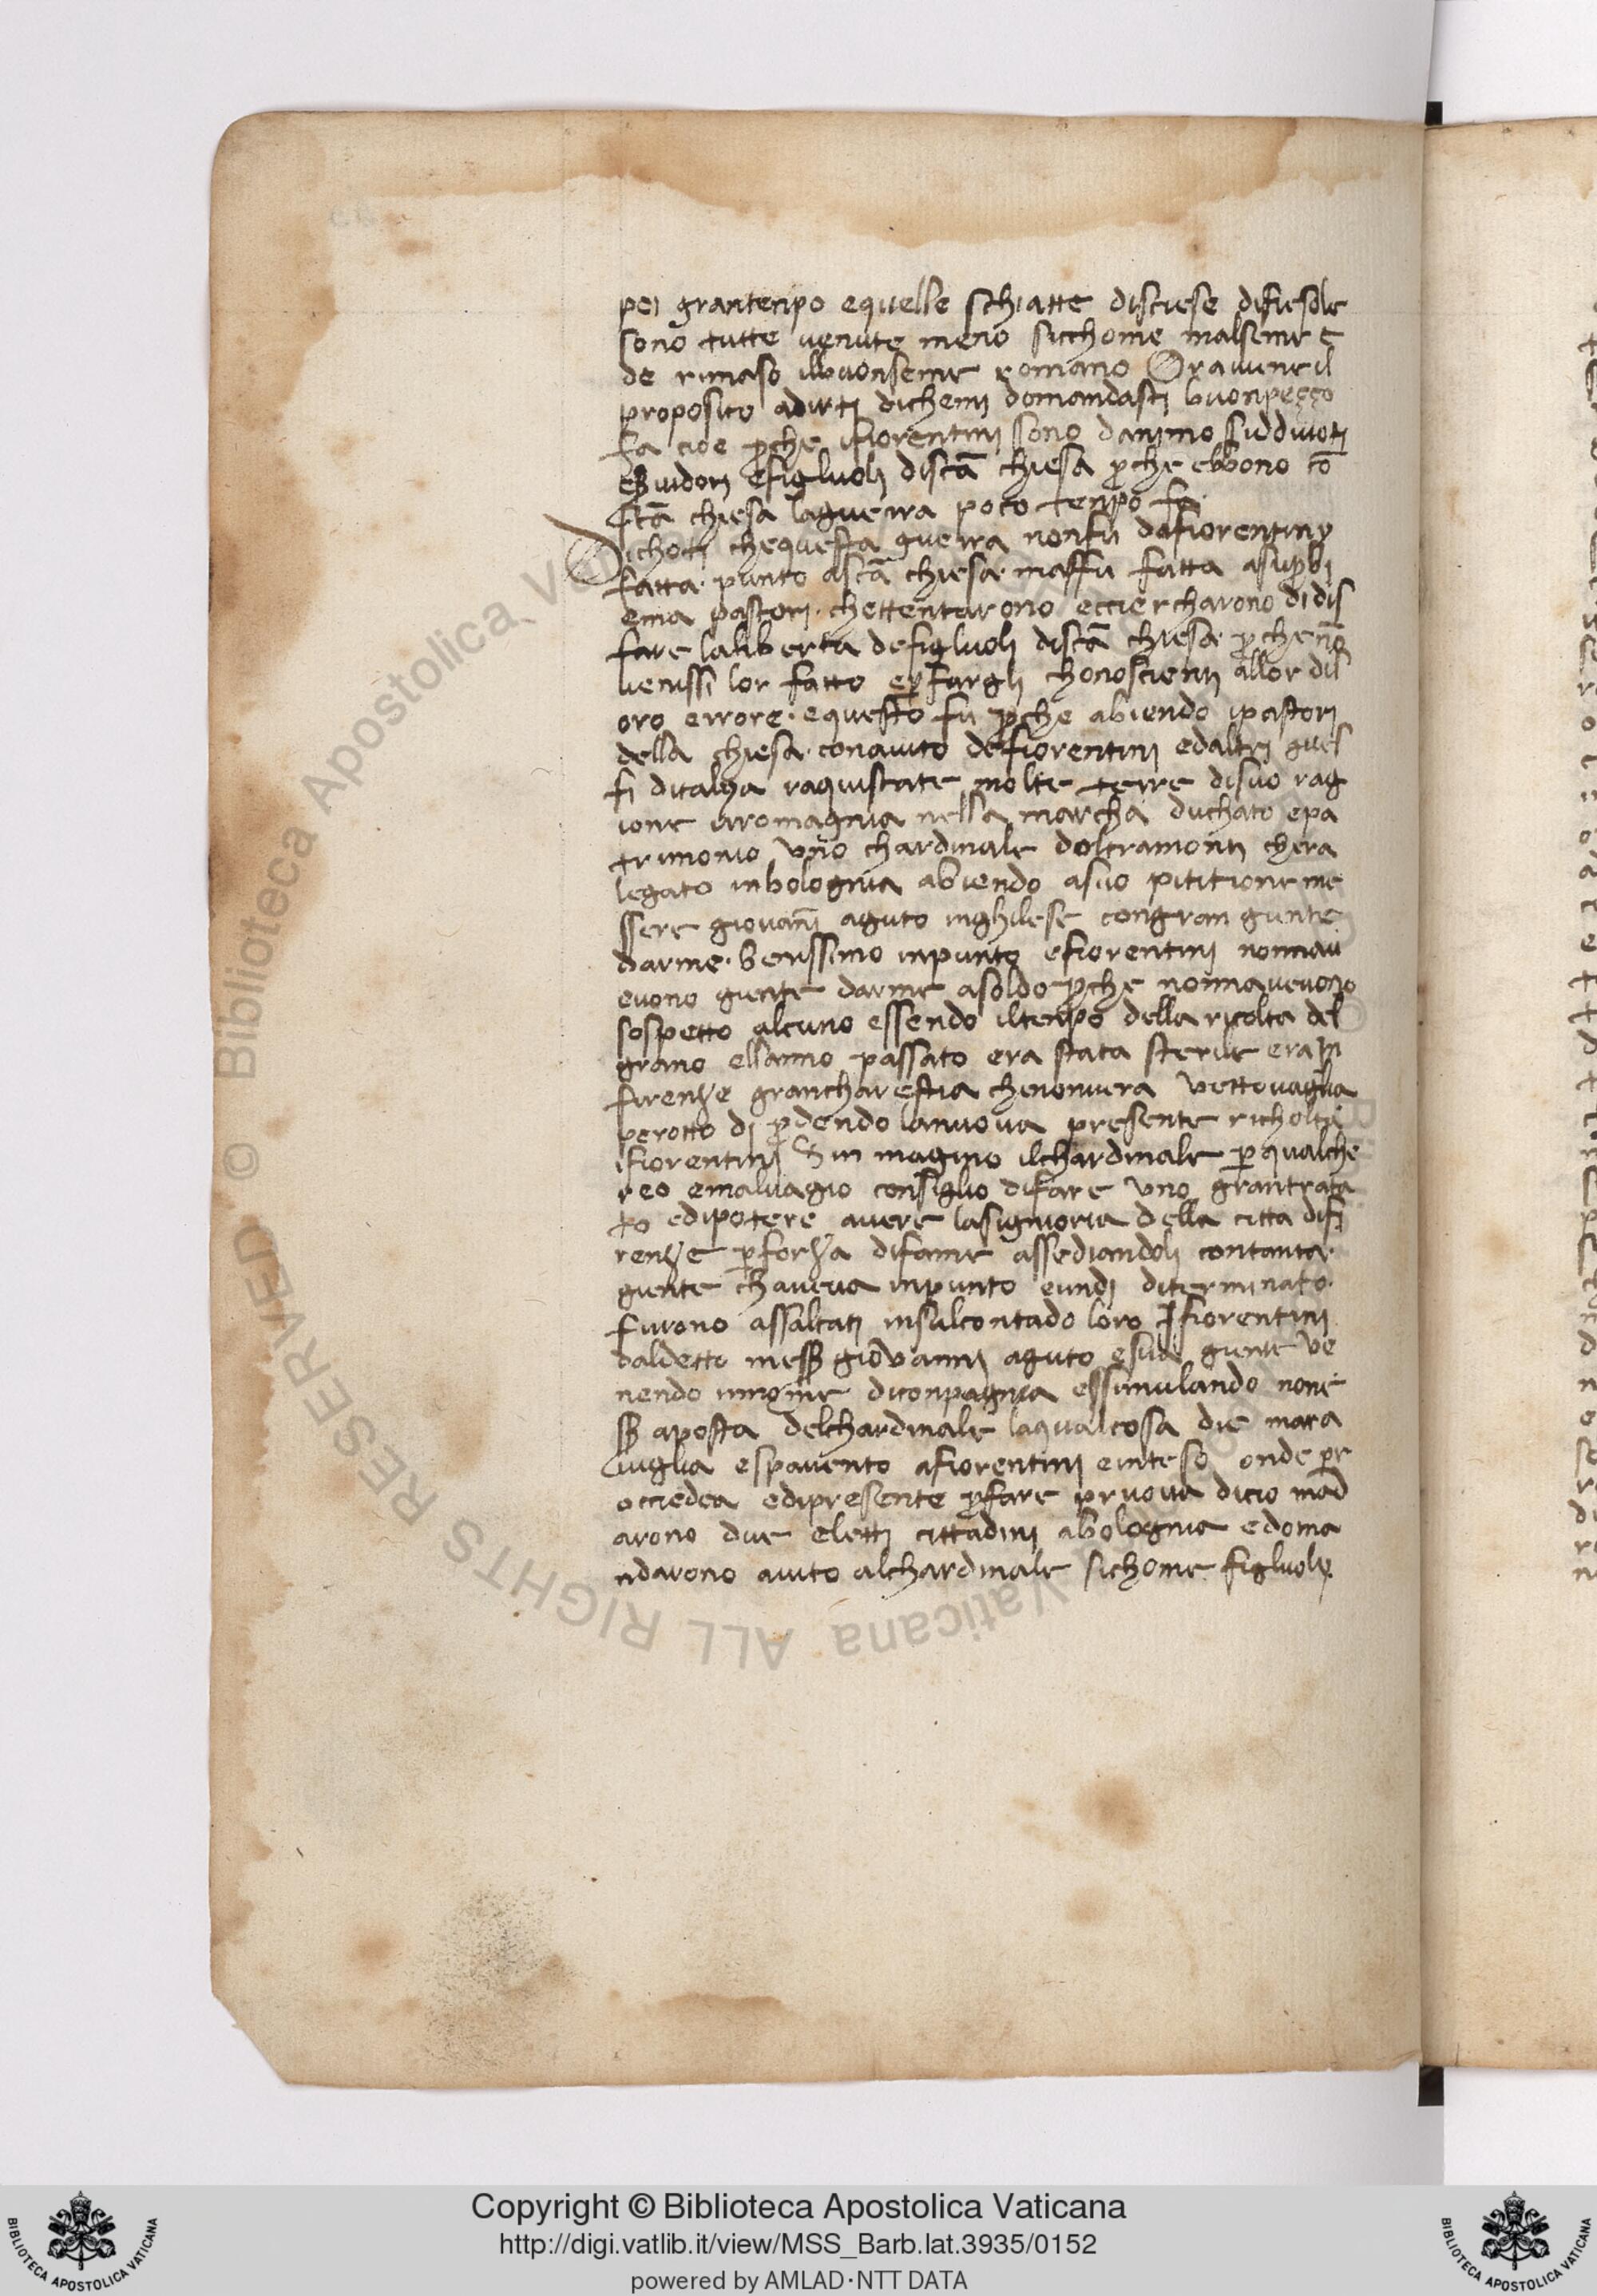 pei grantenpo equelle schiatte disciese difiesole
sono tutte venute meno sicchome malseme e
de rimaso ilbuonseme romano Oravuneil
proposito adirti dichemi domandasti buonpeçço
fa cioe p̱che ifiorentini sono danimo sid divoti
 efigluoli discā chiesa p̱che ebbono cō
scā chiesa laguerra poco tenpo fa
Dichoti chequesta guerra nonfu dafiorentiny
fatta · punto ascā chiesa · maffu fatta asup̱bi
ema pastori · chettentarono ecciercharono di dis
fare laliberta defigluoli discā chiesa · p̱chenō
 lor fatto ep̱fargli chonoscienti allor dil
oro errore · equesto fu p̱che abiendo ipastori
della chiesa · conaiuto defiorentini edaltri guel
fi ditalya raquistate molte terre disuo rag
ione inromagnia nella marcha duchato epa
trimonio uno chardinale doltramonti chera
legato inbolognia abiendo asuo pititione me
ssere giovāni aguto inghilese congran giente
darme · benissimo inpunto efiorentini nonnav
evono giente darme asoldo p̱che nonnavevono
sospetto alcuno essendo iltenpo della ricolta del
grano ellanno passato era stata sterile era in
firenze grancharestia chenonvera vettovaglia
perotto di p̱dendo lanuova presente richolta
ifiorentini Sin magino ilchardinale p̱qualche
reo emalvagio consiglio difare uno grantrata
to edipotere avere lasignioria della citta difi
renze p̱forza difame assediandoli contanta ·
giente chaveva inpunto eundi diterminato ·
furono assaltati insulcontado loro Ifiorentini
daldetto mess giovanni aguto esua giente ve
nendo innome diconpagnia essimulando none
ss aposta delchardinale laqualcosa die mara
viglia espavento afiorentini einteso onde p̱r
occiedea edipresente p̱fare pruova dicio mād
arono due eletti cittadini abolognia edoma
ndarono aiuto alchardinale sichome figluoly
Copyright © Biblioteca Apostolica Vaticana
http://digi.vatlib.it/view/MSS_Barb.lat.3935/0152
powered by AMLAD·NTT DATA
BIBLIOTECA APOSTOLICA VATICANA
BIBLIOTECA APOSTOLICA VATICANA